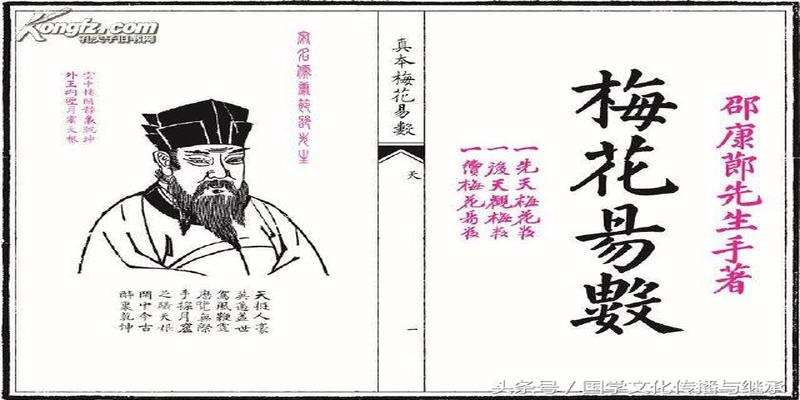 邵康節先生手著
梅花易數
一先天梅花數
一後天觀梅數
真本梅花易數
天
一
天挺人豪
英邁蓋世
駕風鞭霆
歷覽無際
手探月窟
足躡天根
閒中今古
醉裏乾坤
空中樓閣靜裏乾坤
外王內聖月窟天根
Kongfz.com
孔夫子旧书网
头条号/国学文化传播与继承